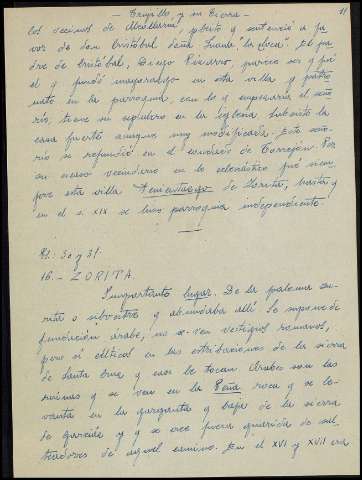 - Trujillo y su tierra -
11
los vecinos de Alcollarín, pleito y sentenció a fa-
vor de don Cristóbal
dre de Cristóbal, Diego Pizarro, parece ser que
él y fundó mayorazgo en esta villa y patro
nato en la parroquia, con lo q empezaría el seño
río, tiene su sepulcro en la iglesia. Subsiste la
casa fuerte aunque muy modificada. Este seño-
río se refundió en el condado de Torrejón. Por
su escaso vecindario en lo eclesiástico fué siem
pre esta villa de Zorita, hasta q
en el s. XIX se hizo parroquia independiente.
Pl. 30 y 31.
16.- ZORITA.
Importante lugar. De la paloma zu-
rita o silvestre q abundaba allí. Se supone de
fundación árabe, no se ven vestigios romanos,
pero si célticos en las estribaciones de la sierra
de Santa Cruz q casi le tocan. Árabes son las
ruinas q se ven en la Peña, roca q se le-
vanta en la garganta q baja de la sierra
de garcida y q se cree fuera guarida de sal
teadores de aquel camino. En el XVI y XVII era